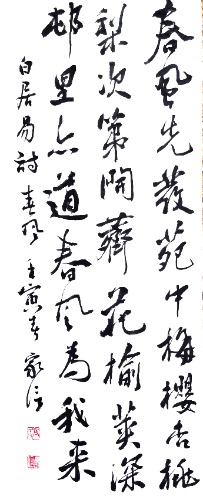 春風先發苑中梅櫻杏桃
梨次第開薺花榆莢深
邨里亦道春風為我来
白居易詩春風壬寅春家信